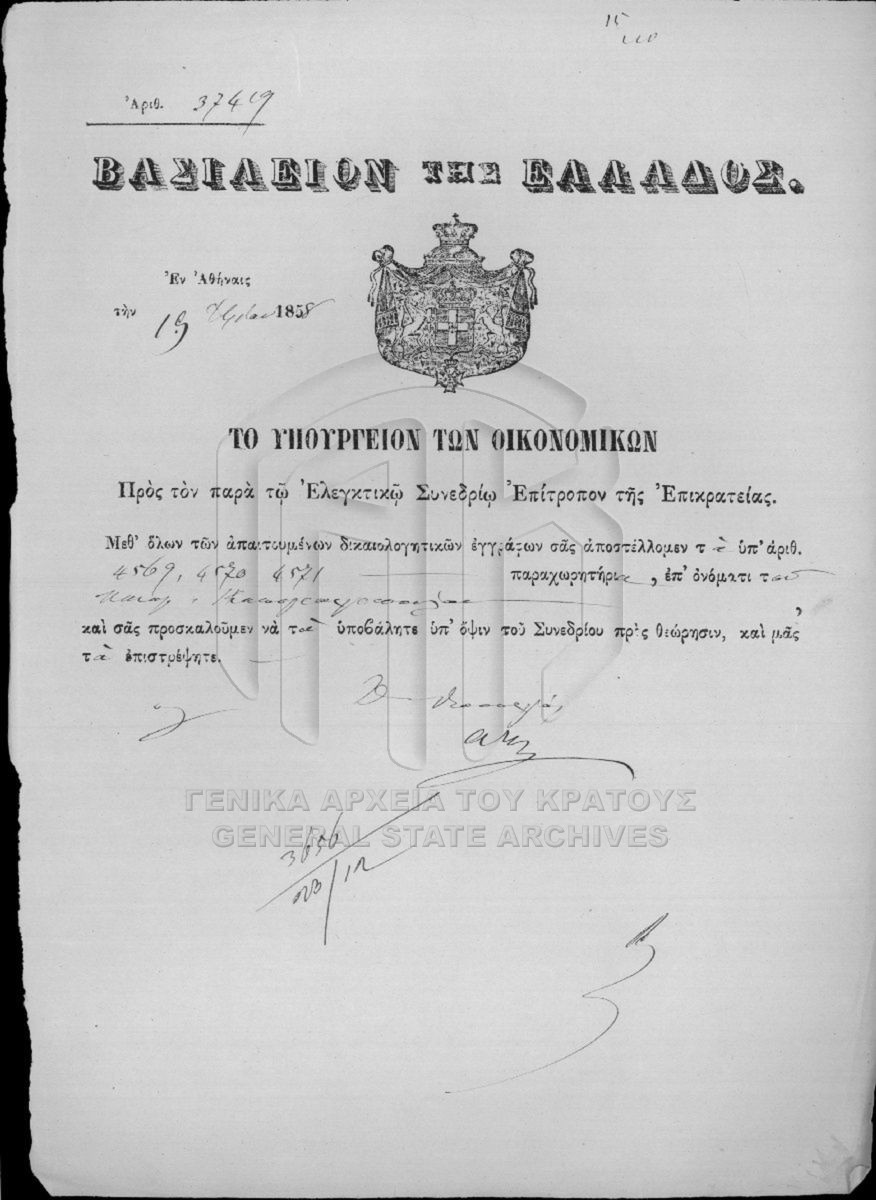 15
Ἀριθ. 37419
ΒΑΣΙΛΕΙΟΝ ΤΗΣ ΕΛΛΑΔΟΣ.
Ἐν Ἀθήναις
τὴν 19 1858
ΤΟ ΥΠΟΥΡΓΕΙΟΝ ΤΩΝ ΟΙΚΟΝΟΜΙΚΩΝ
Πρὸς τὸν παρὰ τῷ Ἐλεγκτικῷ Συνεδρίῳ Ἐπίτροπον τῆς Ἐπικρατείας.
Μεθ' ὅλων τῶν ἀπαιτουμένων δικαιολογητικῶν ἐγγράφων σᾶς ἀποστέλλομεν τὰ ὑπ' ἀριθ.
4569, 4570 4571 παραχωρητήρια, ἐπ' ὀνόματι τοῦ
καὶ σᾶς προσκαλοῦμεν νὰ τὰ ὑποβάλητε ὑπ' ὄψιν τοῦ Συνεδρίου πρὸς θεώρησιν, καὶ μᾶς
τὰ ἐπιστρέψητε.
ΓΕΝΙΚΑ ΑΡΧΕΙΑ ΤΟΥ ΚΡΑΤΟΥΣ
GENERAL STATE ARCHIVES
3656
23/12